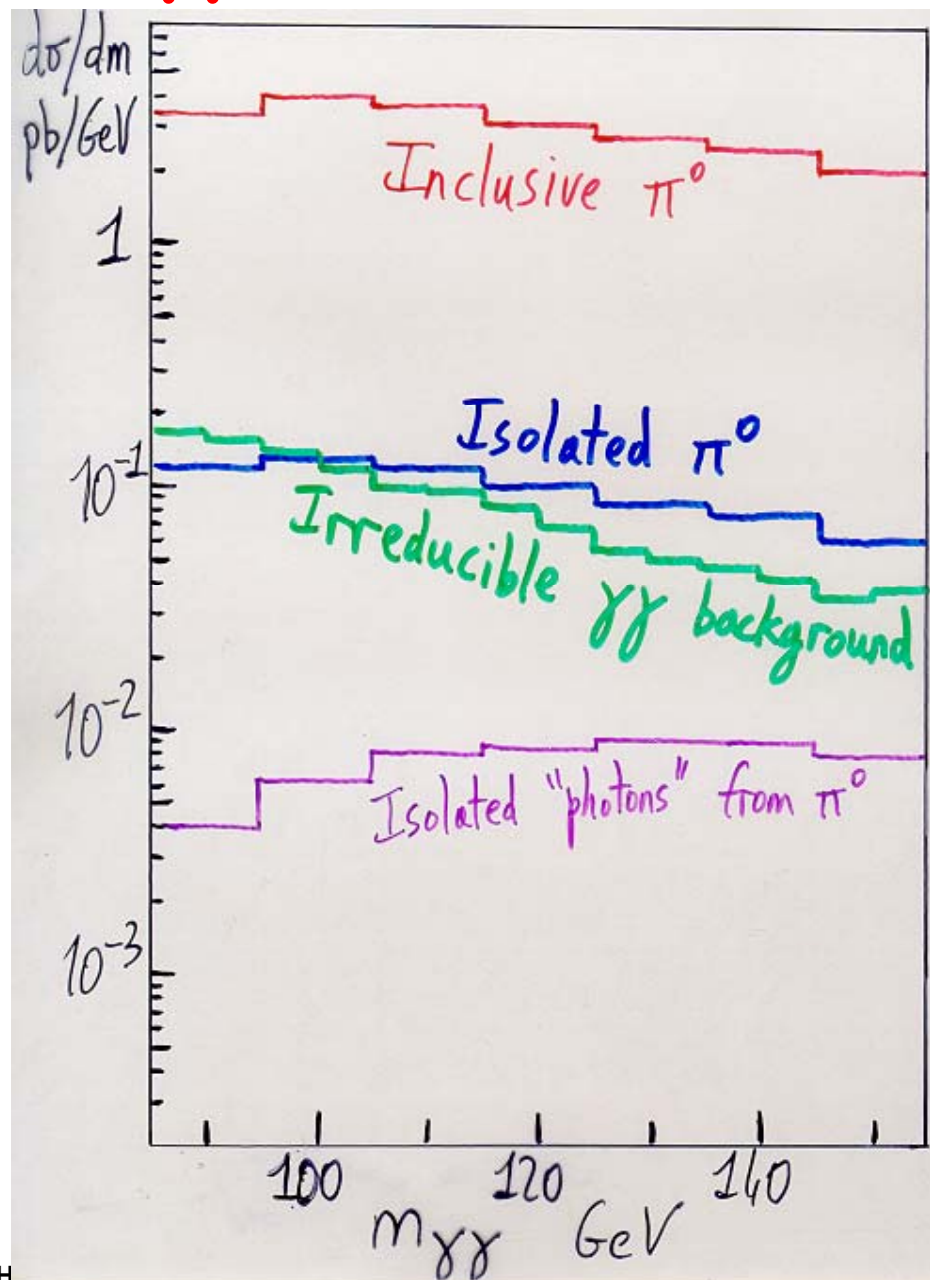 dσ/dm
pb/GeV
Inclusive π⁰
1
Isolated π⁰
10⁻¹
Irreducible γγ background
10⁻²
Isolated "photons" from π⁰
10⁻³
100 120 140
mγγ GeV
H